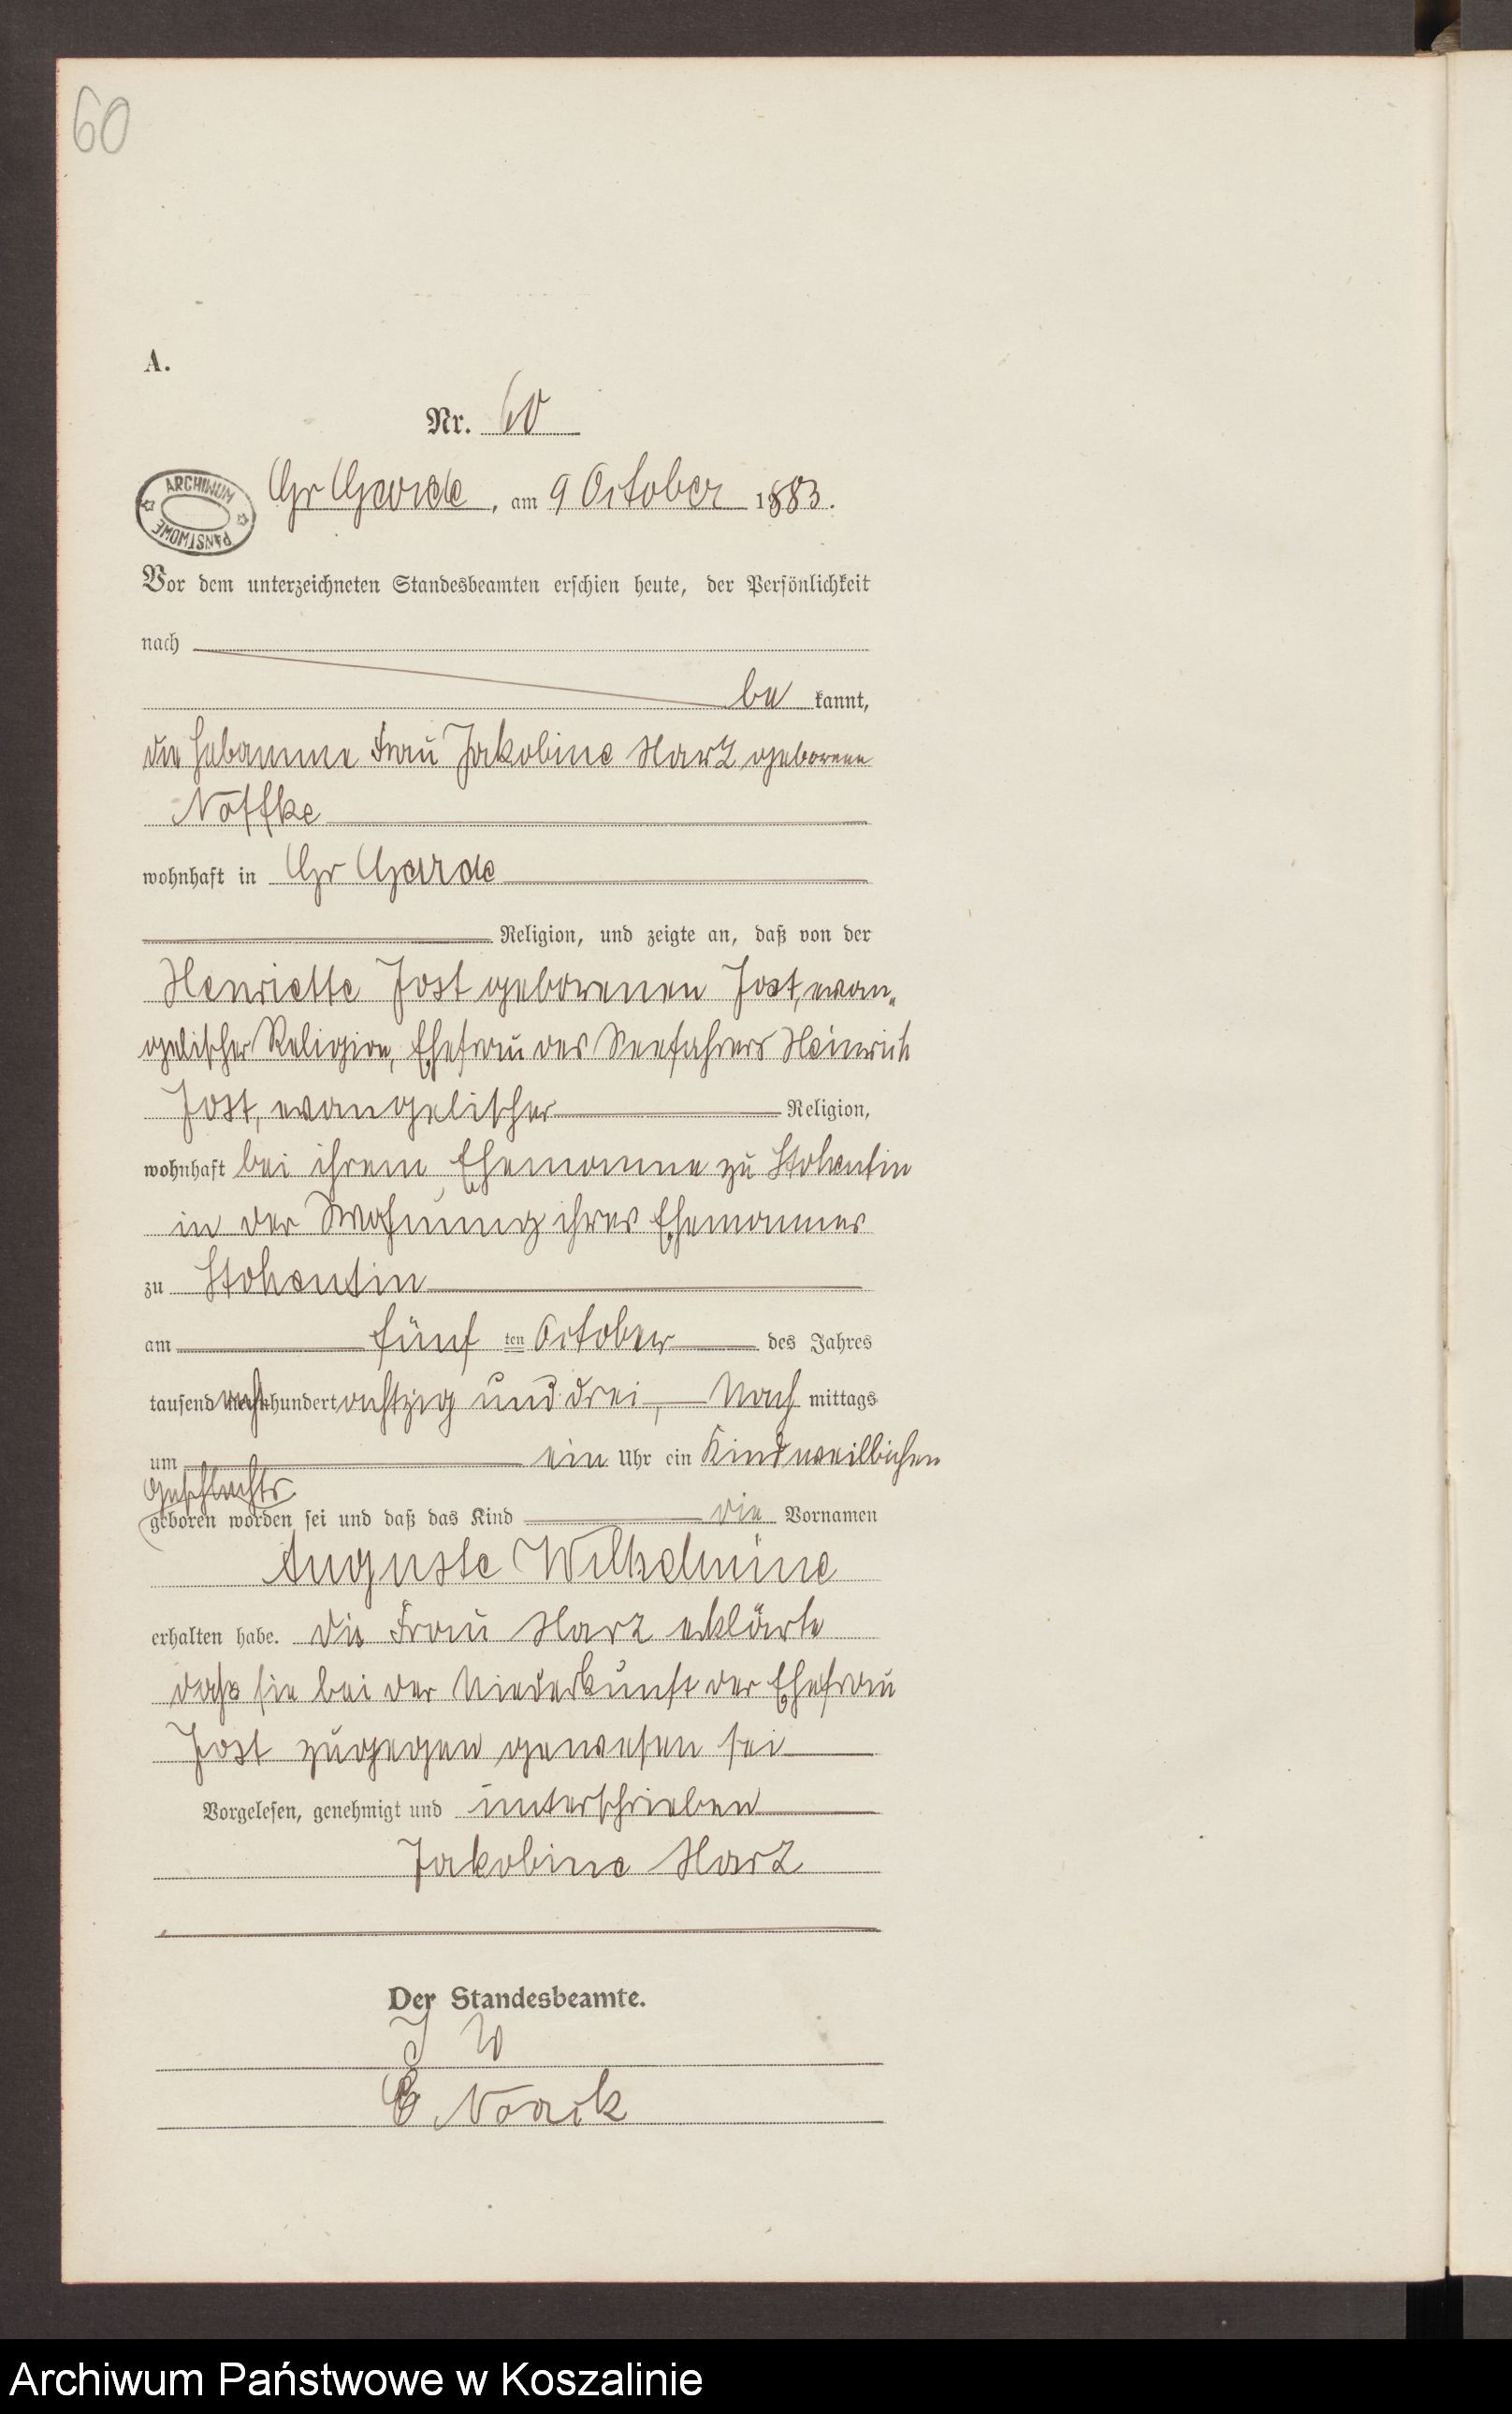 60
A.
Nr. 60
ARCHIWUM
PAŃSTWOWE
Gr Garde, am 9 October 1883.
Vor dem unterzeichneten Standesbeamten erschien heute, der Persönlichkeit
nach
be kannt,
die Hebamme Frau Jakobine Harz geborene
Nöffke
wohnhaft in Gr Garde
Religion, und zeigte an, daß von der
Henriette Jost geborenen Jost, evan„
gelischer Religion, Ehefrau des Seefahrers Heinrich
Jost, evangelischer Religion,
wohnhaft bei ihrem Ehemanne zu Stohentin
in der Wohnung ihres Ehemannes
zu Stohentin
am fünf ten October des Jahres
tausend acht hundert achtzig und drei, Nach mittags
um ein Uhr ein Kind weiblichen
Geschlechts
geboren worden sei und daß das Kind die Vornamen
Auguste Wilhelmine
erhalten habe. Die Frau Harz erklärte
daß sie bei der Niederkunft der Ehefrau
Jost zugegen gewesen sei
Vorgelesen, genehmigt und unterschrieben
Jakobine Harz
Der Standesbeamte.
J V
Noack
Archiwum Państwowe w Koszalinie